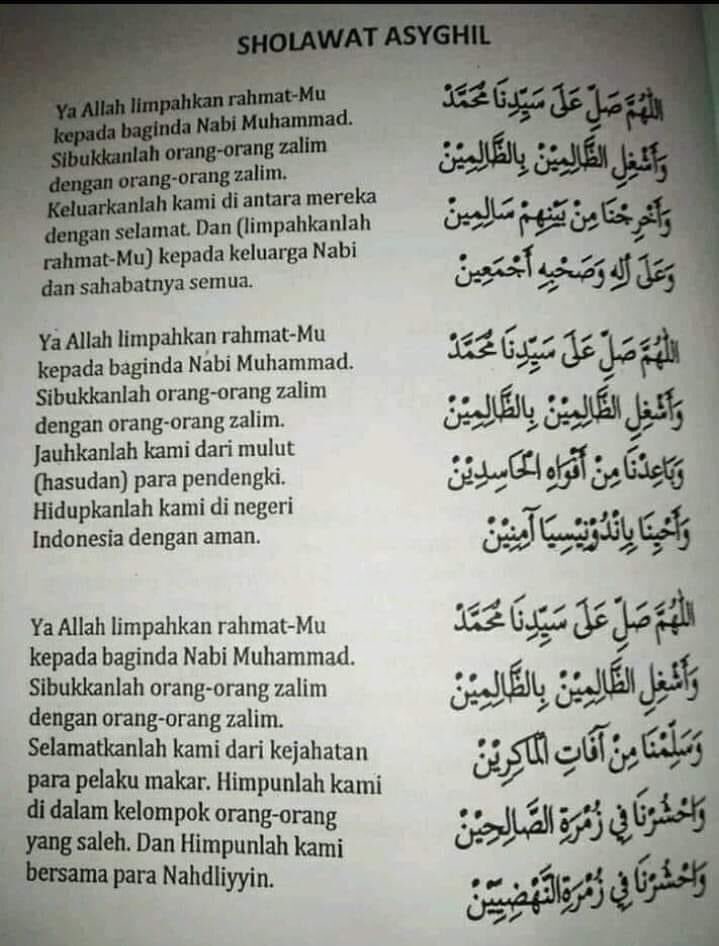 SHOLAWAT ASYGHIL
Ya Allah limpahkan rahmat-Mu
kepada baginda Nabi Muhammad.
Sibukkanlah orang-orang zalim
dengan orang-orang zalim.
Keluarkanlah kami di antara mereka
dengan selamat. Dan (limpahkanlah
rahmat-Mu) kepada keluarga Nabi
dan sahabatnya semua.
اَللّٰهُمَّ صَلِّ عَلَى سَيِّدِنَا مُحَمَّدْ
وَأَشْغِلِ الظَّالِمِيْنْ بِالظَّالِمِيْنْ
وَأَخْرِجْنَا مِنْ بَيْنِهِمْ سَالِمِينْ
وَعَلَى آلِهِ وَصَحْبِهِ أَجْمَعِينْ
Ya Allah limpahkan rahmat-Mu
kepada baginda Nabi Muhammad.
Sibukkanlah orang-orang zalim
dengan orang-orang zalim.
Jauhkanlah kami dari mulut
(hasudan) para pendengki.
Hidupkanlah kami di negeri
Indonesia dengan aman.
اَللّٰهُمَّ صَلِّ عَلَى سَيِّدِنَا مُحَمَّدْ
وَأَشْغِلِ الظَّالِمِيْنْ بِالظَّالِمِيْنْ
وَبَاعِدْنَا مِنْ أَفْوَاهِ الْحَاسِدِيْنْ
وَأَحْيِنَا بِاِنْدُوْنِيْسِيَا آمِنِيْنْ
Ya Allah limpahkan rahmat-Mu
kepada baginda Nabi Muhammad.
Sibukkanlah orang-orang zalim
dengan orang-orang zalim.
Selamatkanlah kami dari kejahatan
para pelaku makar. Himpunlah kami
di dalam kelompok orang-orang
yang saleh. Dan Himpunlah kami
bersama para Nahdliyyin.
اَللّٰهُمَّ صَلِّ عَلَى سَيِّدِنَا مُحَمَّدْ
وَأَشْغِلِ الظَّالِمِيْنْ بِالظَّالِمِيْنْ
وَسَلِّمْنَا مِنْ آفَاتِ الْمَاكِرِيْنْ
وَاحْشُرْنَا فِي زُمْرَةِ الصَّالِحِيْنْ
وَاحْشُرْنَا فِي زُمْرَةِ النَّهْضِيِّيْنْ